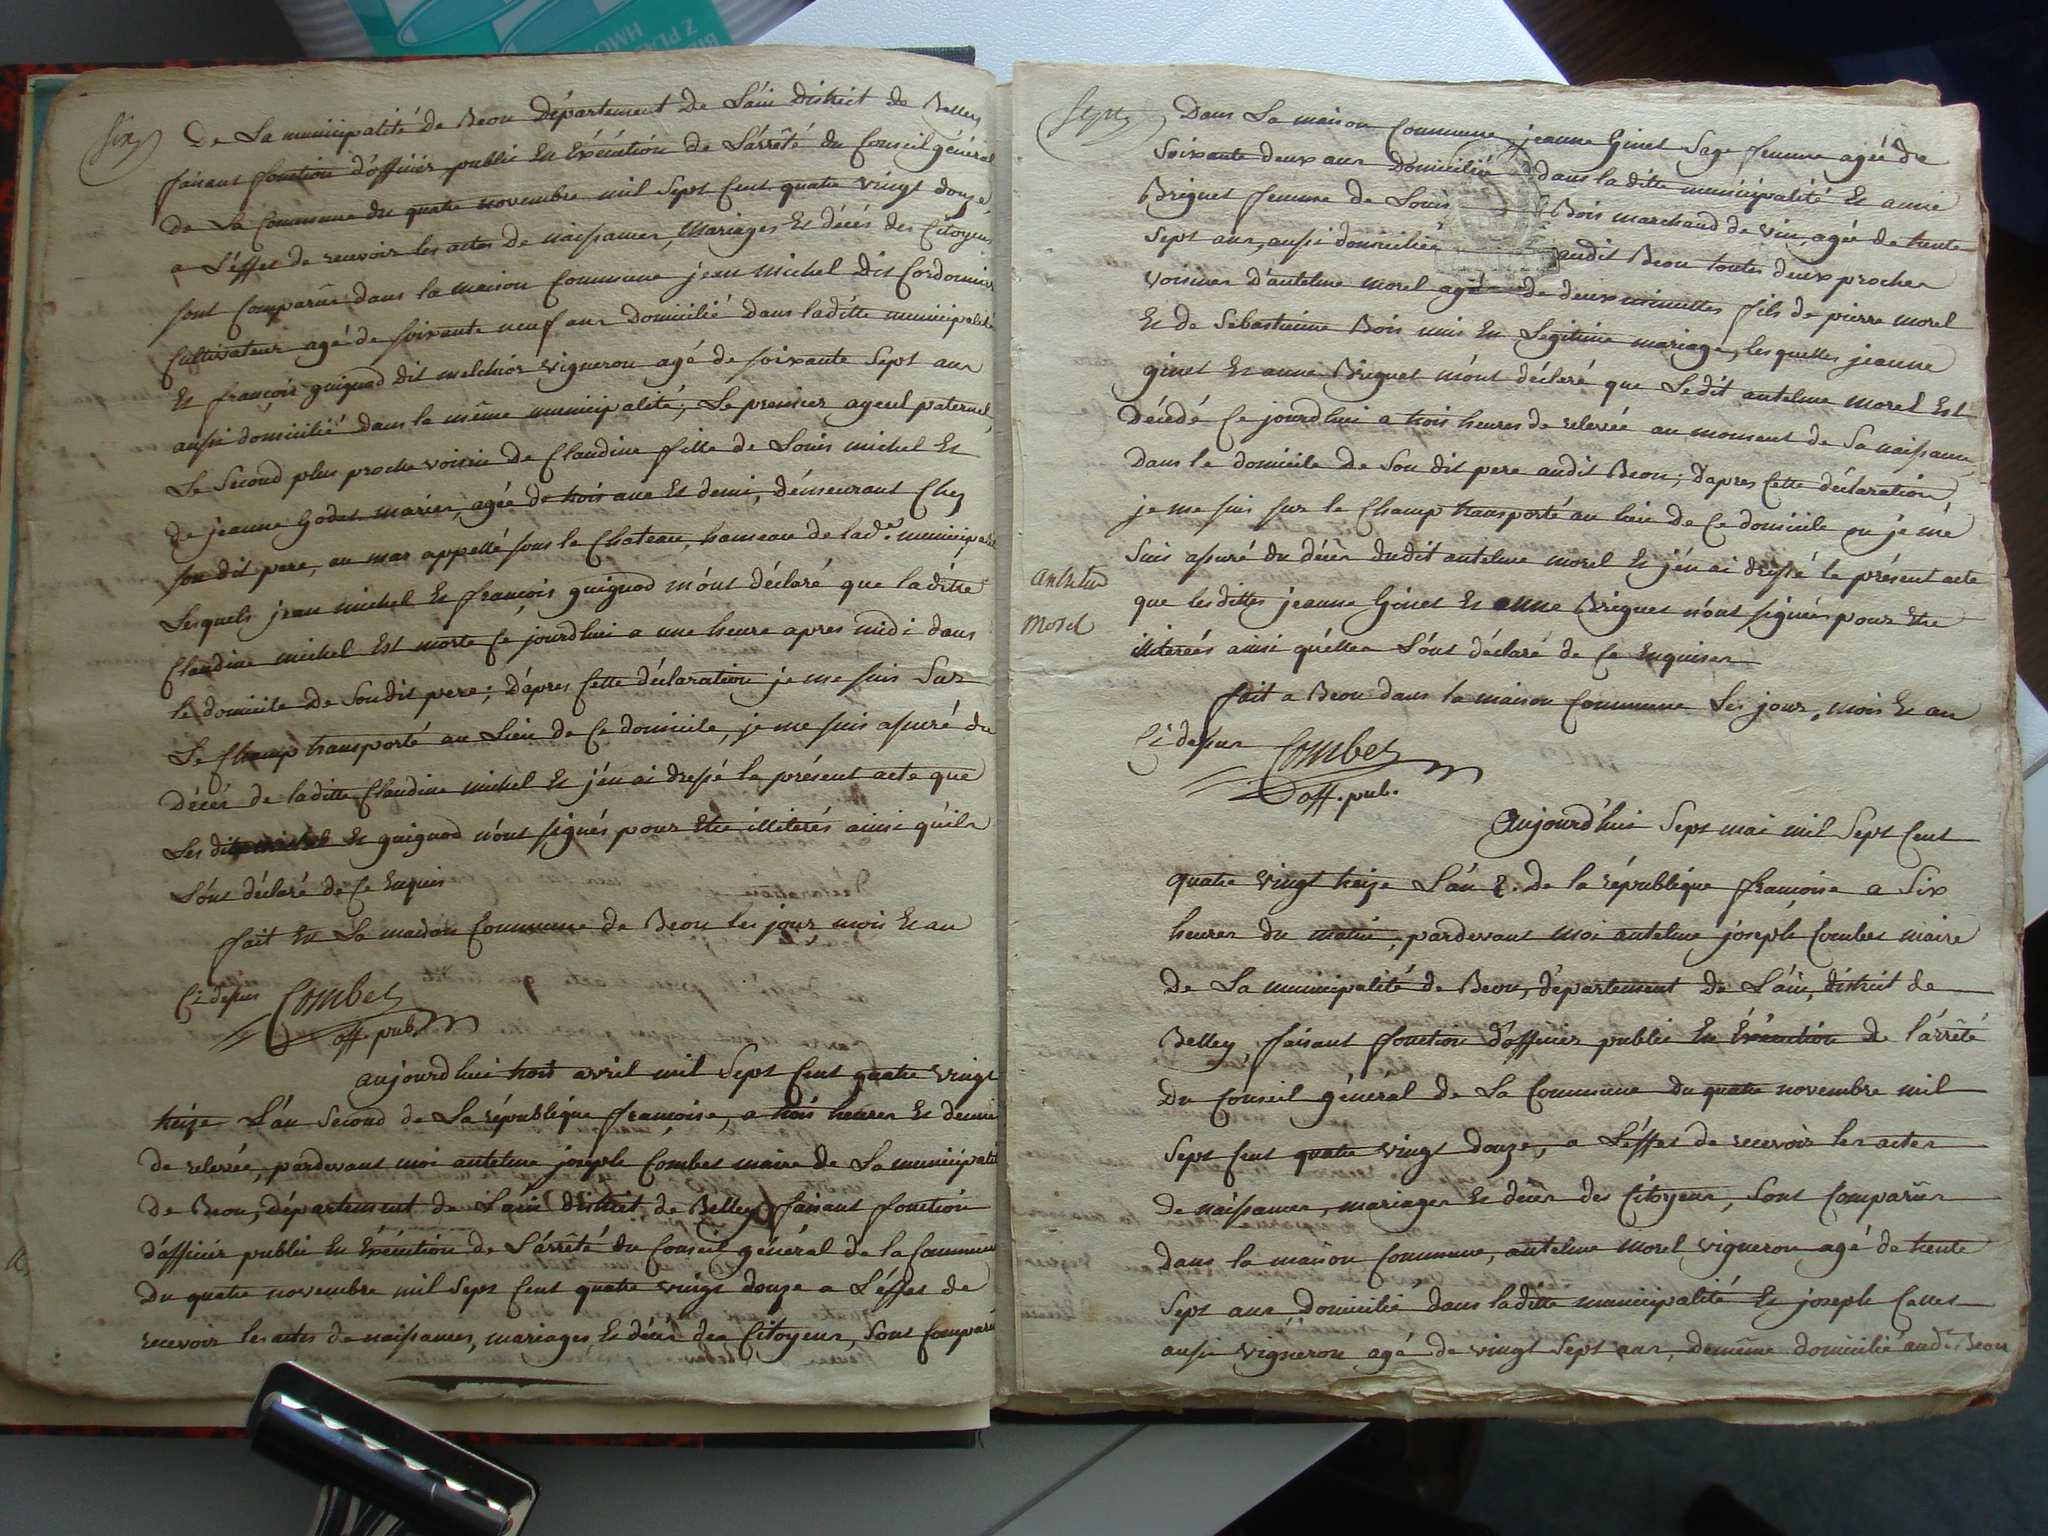 Six
De La municipalité de Beon Département De L'áin District de Belley
faisant fonction d'officier public En Exécution de L'arrêté du Conseil général
de La Commune du quatre novembre mil Sept Cent quatre vingt douze
a L'éffet de recevoir les actes de naissances, Mariages Et décés des Citoyens
sont Comparûs dans la maison Commune jean michel dit Cordonnier
Cultivateur agé de soixante neuf ans Domicilié dans laditte municipalité
Et françois guignod dit melchior vigneron agé de soixante Sept ans
aussi domicilié dans la même municipalité; Le premier ayeul paternel,
Le Second plus proche voisin de Claudine fille de Louis michel Et
de jeanne Godet mariés, agée de trois ans Et demi, démeurant Chez
son dit pere, au mas appellé sous le Chateau, hameau de lad.e municipalité
Lesquels jean michel Et françois guignod m'ónt déclaré que laditte
Claudine michel Est morte Ce jourdhui a une heure apres midi dans
le domicile de Son dit pere; d'apres Cette déclaration je me suis Sur
Le Champ transporté au Lieu de Ce domicile, je me suis assuré du
Décés de laditte Claudine michel Et j'én ai dressé le présent acte que
Les dits michel Et guignod n'ónt signés pour Etre illiterés ainsi qu'ils
L'ónt déclaré de Ce Enquis
fait En La maison Commune de Beon les jour, mois Et an
Ci dessus Combet
off. pub.
aujourdhui trois avril mil Sept Cent quatre vingt
treize L'án Second de La république françoise, a trois heures Et demie
de relevée, pardevant moi antelme joseph Combet maire de La municipalité
de Beon, département de L'áin District de Belley, faisant fonction
d'officier public En Exécution de L'árrêté du Conseil général de la Commune
Du quatre novembre mil Sept Cent quatre vingt douze a L'éffet de
recevoir les actes de naissances, mariages Et décés des Citoyens, Sont Comparûs
Sept
Dans La maison Commune, jeanne Ginet Sage femme agée de
Soixante deux ans Domiciliée dans la ditte municipalité Et anne
Briguet femme de Louis Bois marchand de vin, agée de trente
Sept ans, aussi domiciliée audit Beon toutes deux proches
voisines d'antelme morel agé de deux minuttes fils de pierre morel
Et de Sebastienne Bois unis En Légitime mariage, les quelles jeanne
ginet Et anne Briguet m'ónt déclaré que Ledit antelme morel Est
Décédé Ce jourdhui a trois heures de relevée au moment de Sa naissance
dans le domicile de Son dit pere audit Beon; d'apres Cette déclaration
je me suis sur le Champ transporté au lieu de Ce domicile ou je me
Suis assuré du décés dudit antelme morel Et j'én ai dressé le présent acte
antelme
morel
que lesdittes jeanne Ginet Et anne Briguet n'ónt signées pour Etre
illiterées ainsi qu'elles L'ónt déclaré de Ce Enquises
fait a Beon dans la maison Commune Les jour, mois Et an
Ci dessus Combet
off. pub.
Aujourd'hui Sept mai mil Sept Cent
quatre vingt treize L'án 2. de la république françoise a Six
heures du matin, pardevant moi antelme joseph Combet maire
De La municipalité de Beon, département de L'áin, district de
Belley, faisant fonction d'officier public En Exécution de l'árrêté
Du Conseil général de La Commune du quatre novembre mil
Sept Cent quatre vingt douze, a L'éffet de recevoir les actes
de naissances, mariages Et décés des Citoyens, Sont Comparûs
dans la maison Commune, antelme morel vigneron agé de trente
Sept ans domicilié dans laditte municipalité Et joseph Cattet
aussi vigneron agé de vingt Sept ans, demême domicilié aud.t Beon